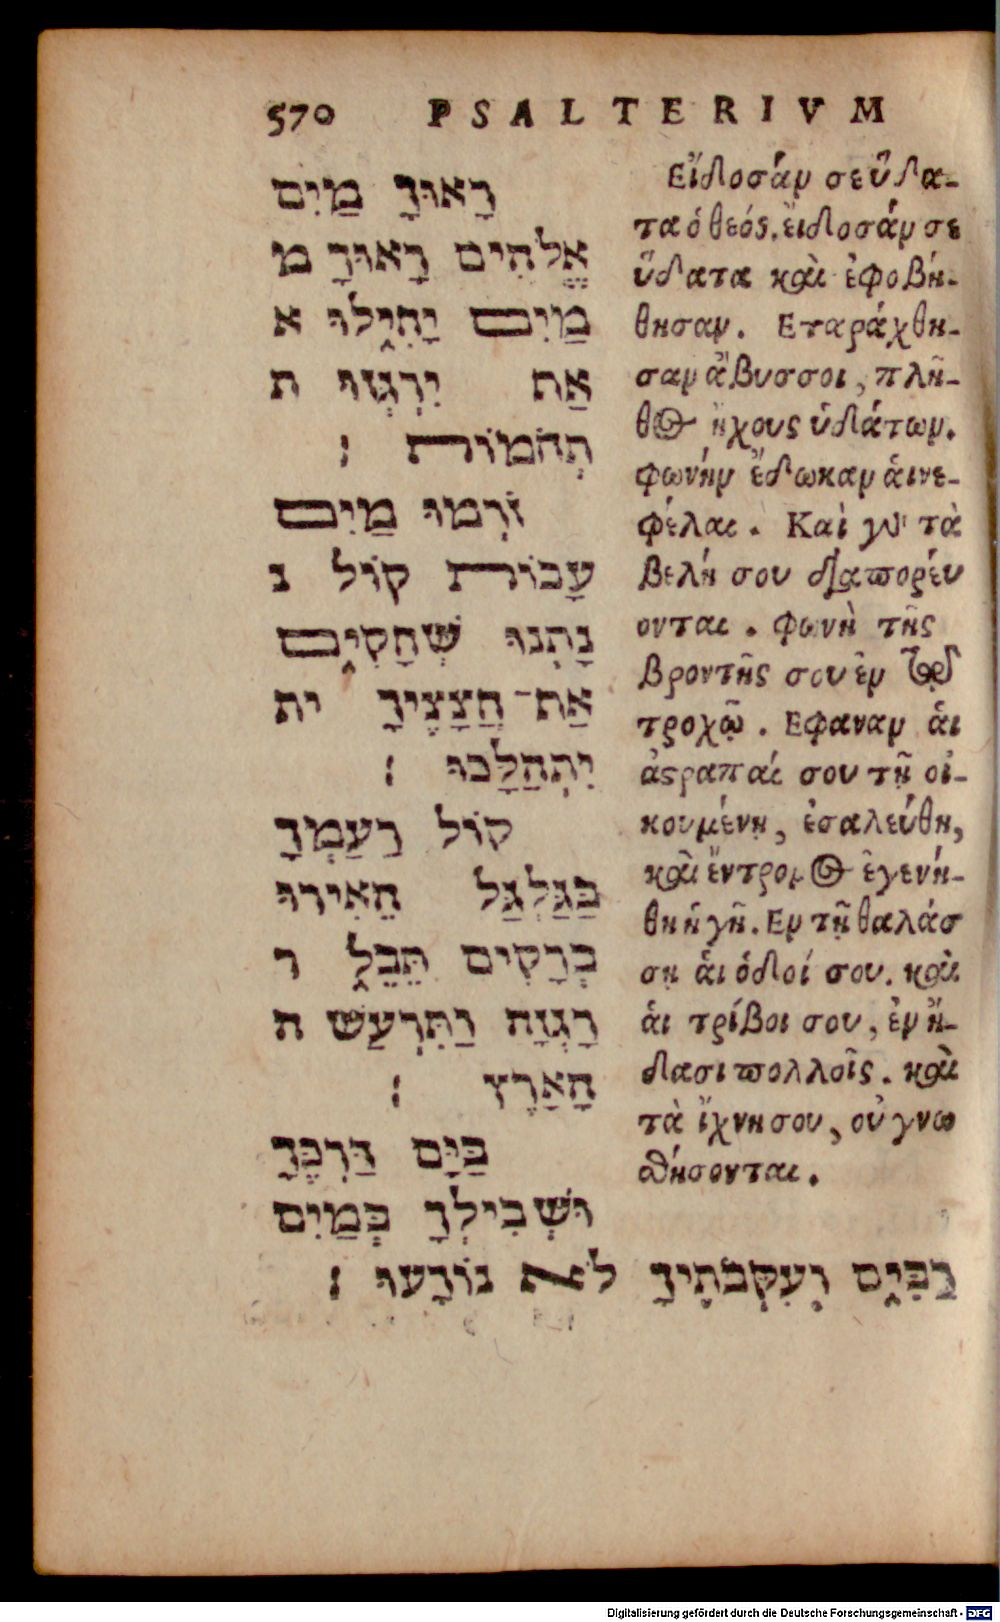 570 PSALTERIVM
רָאוּךָ מַיִם
אֱלֹהִים רָאוּךָ מ
מַיִם יָחִילוּ א
אַת יִרְגְּזוּ ת
תְהֹמוֹת ׃
זֹרְמוּ מַיִם
עָבוֹת קוֹל נ
נָתְנוּ שְׁחָקִים
אַת־חֲצָצֶיךָ ית
יִתְהַלָּכוּ ׃
קוֹל רַעַמְךָ
בַּגַּלְגַּל הֵאִירוּ
בְרָקִים תֵּבֵל ר
רָגְזָה וַתִּרְעַשׁ ה
הָאָרֶץ ׃
בַּיָּם דַּרְכֶּךָ
וּשְׁבִילְךָ בְּמַיִם
רַבִּים וְעִקְּבֹתֶיךָ לֹא נוֹדָעוּ ׃
Εἴδοσάν σε ὕδα-
τα ὁ θεός. ἔιδοσάν σε
ὕδατα καὶ ἐφοβή-
θησαν. Εταράχθη-
σαν ἄβυσσοι, πλῆ-
θος ἠχους ὑδάτων.
φωνὴν ἔδωκαν ἁι νε-
φέλαι. Καὶ γὸ τὰ
βελή σου διαπορέυ
ονται. φωνὴ τῆς
βροντῆς σου ἐν τῷ
τροχῷ. Εφαναν ἁι
ἀστραπαί σου τῇ οἰ-
κουμένῃ, ἐσαλεύθη,
καὶ ἔντρομος ἐγενή-
θη ἡ γῆ. Εν τῇ θαλάσ
σῃ ἁι ὁδοί σου. καὶ
ἁι τρίβοι σου, ἐν ὕ-
δασι πολλοῖς. καὶ
τὰ ἴχνη σου, οὐ γνω
σθήσονται.
Digitalisierung gefördert durch die Deutsche Forschungsgemeinschaft - DFG